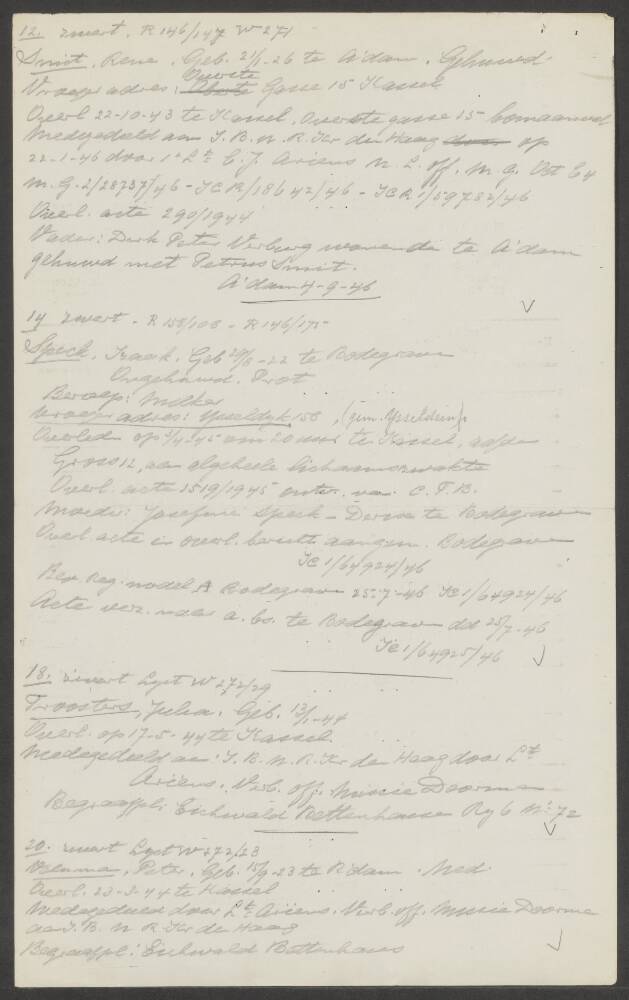 12. zwart. R 146/147 W 271
Smit, Rene, Geb. 21/1-26 te A'dam. Gehuwd.
Vroeger adres: Oberste Overste Gasse 15 Kassel
Overl 22-10-43 te Kassel, Overste gasse 15 bomaanval
Medegedeeld aan I.B.n.R.Kr den Haag door op
22-1-46 door 1e Lt C.J. Ariens N.L. off. M.G. Det 64
M.G. 2/28737/46 - ICR/18642/46 - ICR 1/59782/46
Overl. acte 290/1944
Vader: Derk Peter Verburg wonende te A'dam
gehuwd met Petrus Smit.
A'dam 4-9-46
14 zwart - R 158/108 - R 146/175
Speck, Izaak. Geb 29/8-22 te Bodegraven
Ongehuwd. Prot
Beroep: Melker
Vroeger adres: IJsseldijk 158, (gem. IJsselstein).
Overleden op 3/4-45 om 20 uur te Kassel,
12, aan algeheele lichaamszwakte
Overl. acte 1519/1945 ontv. van C.T.B.
Moeder: Josefine Speck - te Bodegraven
Overl acte in overl. bericht aangem. Bodegraven
IC 1/64924/46
Bev. Reg. model A Bodegraven 25-7-46 IC 1/64924/46
Acte verz. naar a. bs. te Bodegraven dd 25/7-46
IC 1/64925/46
18. zwart Lyst W 272/29
Troosters, Julia. Geb. 13/1-44
Overl. op 17-5-44 te Kassel.
Medegedeeld aan: I.B.n.R.Kr den Haag door Lt
Ariens. Verb. off. Missie Doorman
Begraafpl: Eichwald Bettenhausen Ry 6 No 72
20. zwart Lyst W 272/23
Peter, Geb. 15/9-23 te R'dam. Ned
Overl. 23-3-44 te Kassel
Medegedeeld door Lt. Ariens. Verb. off. Missie Doorman
aan I.B.n R Kr den Haag
Begraafpl: Eichwald Bettenhaus